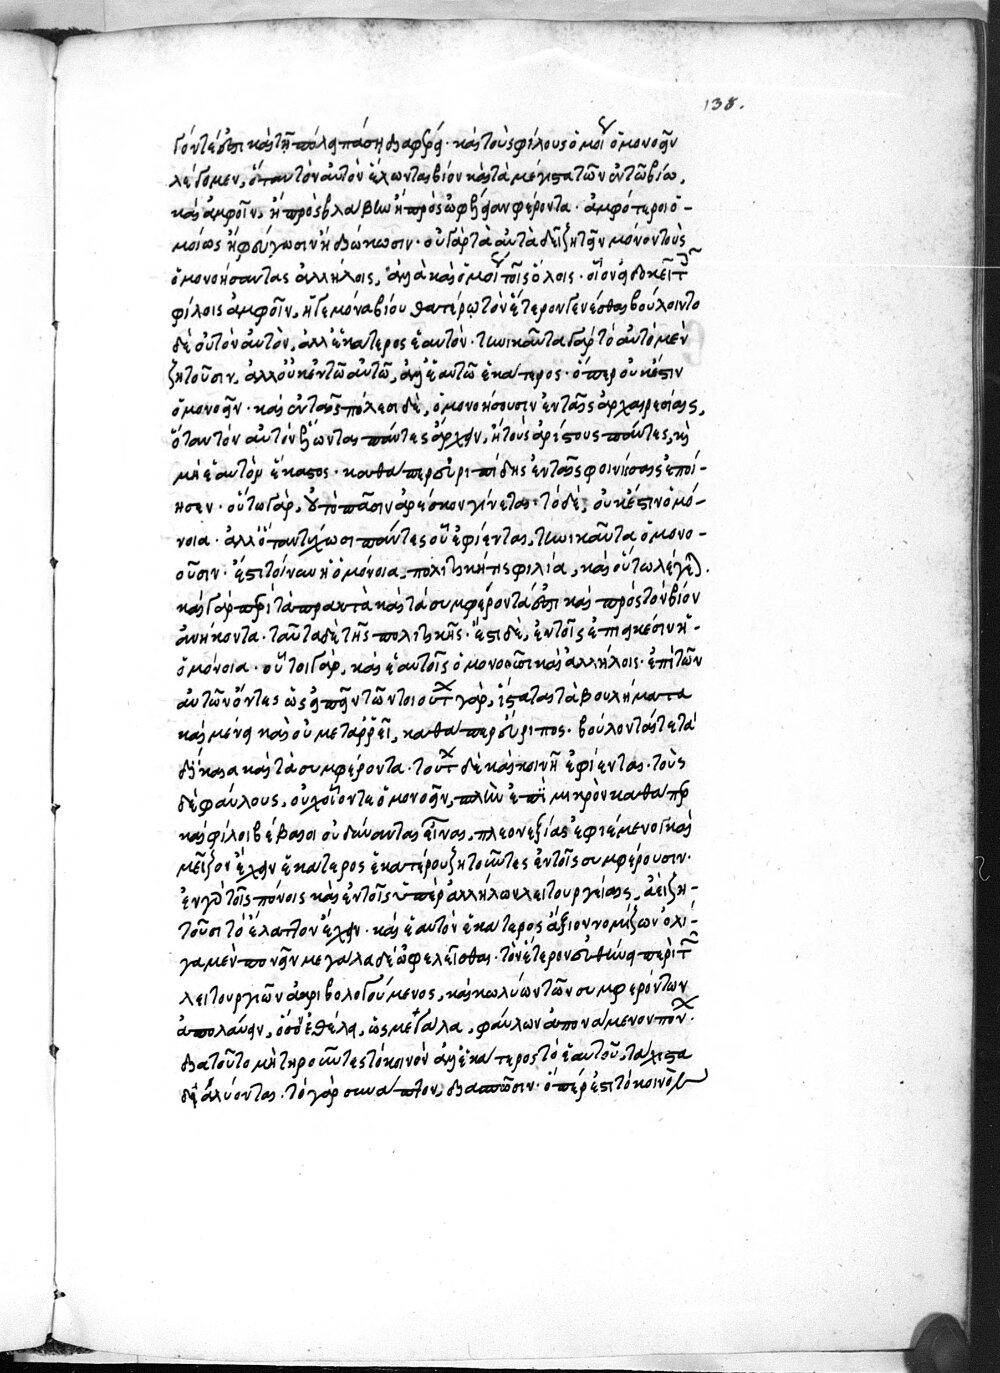 138.
γόντές ἐστι καὶ τῇ πόλει πάσῃ διαφέρει· καὶ τοὺς φίλους ὁμοί ὁμονοεῖν
λέγομεν, ὅταν τὸν αὐτὸν ἕλωνται βίον καὶ τὰ μέγιστα τῶν ἐν τῷ βίῳ,
καὶ ἀμφοῖν, ἢ πρὸς βλάβην ἢ πρὸς ὠφέλειαν φέροντα· ἀμφότεροι ὁ-
μοίως ἢ φεύγωσιν ἢ διώκωσιν· οὐ γὰρ τὰ αὐτὰ δεῖ ζητεῖν μόνον τοὺς
ὁμονοήσαντας ἀλλήλοις, ἀλλὰ καὶ ὁμοί τοῖς ὅλοις· οἷον εἰ δοκεῖ τ
φίλοις ἀμφοῖν, ἡγεμόνα βίου θατέρῳ τὸν ἕτερον γενέσθαι βούλοιντο
δὲ οὐ τὸν αὐτὸν, ἀλλ' ἑκάτερος ἑαυτὸν· τηνικαῦτα γὰρ τὸ αὐτὸ μὲν
ζητοῦσιν, ἀλλ' οὐκ ἐν τῷ αὐτῷ, ἀλλ' ἑαυτῷ ἑκάτερος· ὅπερ οὐκ ἔστιν
ὁμονοεῖν· καὶ ἐν ταῖς πόλεσι δὲ, ὁμονοήσουσιν ἐν ταῖς ἀρχαιρεσίαις,
ὅταν τὸν αὐτὸν ἕλωνται πάντες ἄρχειν, ἢ τοὺς ἀρίστους πάντες, καὶ
μὴ ἑαυτὸν ἕκαστος· καθάπερ εὐριπίδης ἐν ταῖς φοινίσσαις ἐποί-
ησεν· οὕτω γὰρ, τὸ πᾶσιν ἀρέσκον γίνεται· τὸ δὲ, οὐκ ἔστιν ὁμό-
νοια· ἀλλ' ὅταν τύχωσι πάντες οὗ ἐφίενται, τηνικαῦτα ὁμονο-
οῦσιν· ἔστι τοίνυν ἡ ὁμόνοια, πολιτική τις φιλία, καὶ οὕτω λέγεται.
καὶ γὰρ περὶ τὰ πρακτὰ καὶ τὰ συμφέροντά ἐστι καὶ πρὸς τὸν βίον
ἀνήκοντα· ταῦτα δὲ τῆς πολιτικῆς· ἔστι δὲ, ἐν τοῖς ἐπιεικέσιν ἡ-
ὁμόνοια· οὗτοι γὰρ, καὶ ἑαυτοῖς ὁμονοοῦσι καὶ ἀλλήλοις· ἐπὶ τῶν
αὐτῶν ὄντες ὡς εἰπεῖν τῶν τοιούτ γὰρ, ἵσταται τὰ βουλήματα
καὶ μένει καὶ οὐ μεταῤῥεῖ, καθάπερ εὔριπος· βούλονταί τε τὰ
δίκαια καὶ τὰ συμφέροντα· τούτ δὲ καὶ κοινῇ ἐφίενται· τοὺς
δὲ φαύλους, οὐχ οἷόν τε ὁμονοεῖν, πλὴν ἐπὶ μικρὸν καθάπερ
καὶ φίλοι βέβαιοι οὐ δύνανται εἶναι, πλεονεξίας ἐφιέμενοι καὶ
μεῖζον ἔχειν ἑκάτερος ἑκατέρου ζητοῦντες ἐν τοῖς συμφέρουσιν·
ἐν γὰρ τοῖς πόνοις καὶ ἐν τοῖς ὑπὲρ ἀλλήλων λειτουργίαις, ἀεὶ ζη-
τοῦσι τὸ ἔλαττον ἔχειν· καὶ ἑαυτὸν ἑκάτερος ἄξιον νομίζων ὀλί-
γα μὲν πονεῖν μεγάλα δὲ ὠφελεῖσθαι· τὸν ἕτερον εὐθύνει περὶ τ
λειτουργιῶν ἀκριβολογούμενος, καὶ κωλύων τῶν συμφερόντων
ἀπολαύειν, ὅσον ἐθέλει, ὡς μεγάλα, φαύλων ἀποναμενον πόν·
διὰ τοῦτο μὴ τηροῦντες τὸ κοινὸν ἀλλ' ἑκάτερος τὸ ἑαυτοῦ, τάχιστα
διαλύονται· τὸ γὰρ συνάπτον, διασπῶσιν· ὅπέρ ἐστι τὸ κοινὸν